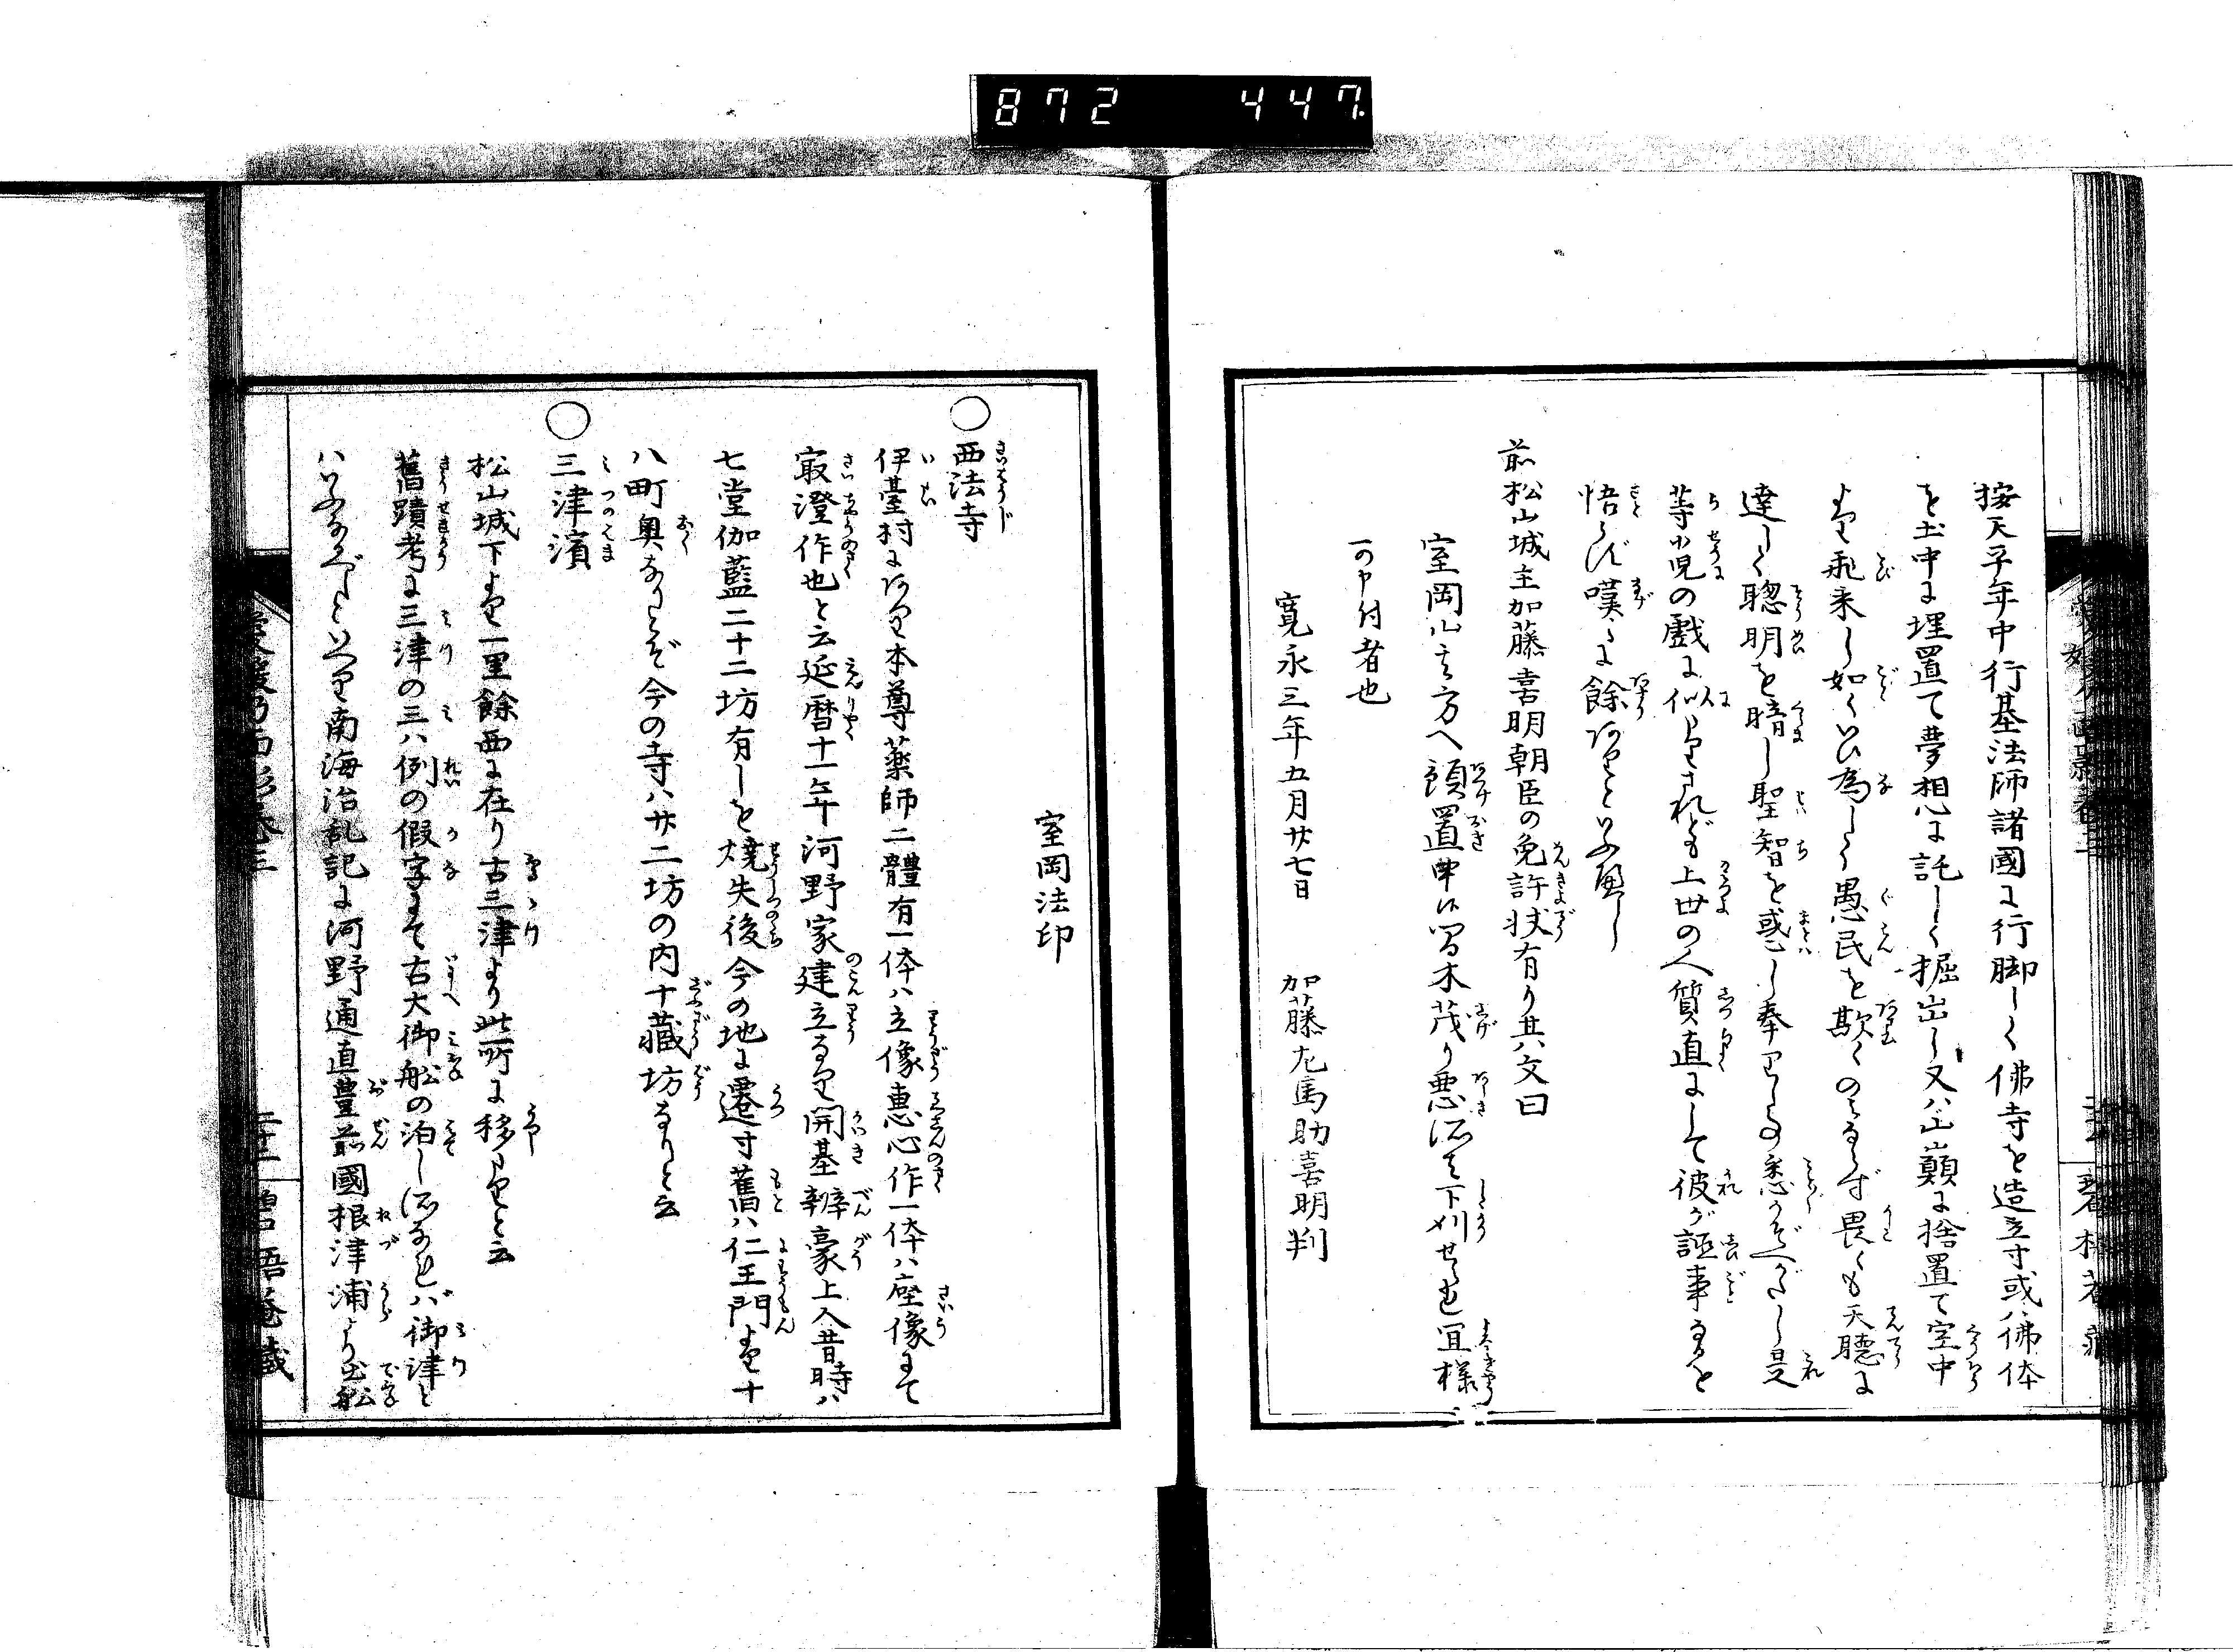 872 447
按天平年中行基法師諸國に行脚して佛寺を造立す或ハ佛体
を土中に埋置て夢想に託して掘出し又ハ山巓に捨置て空中
より飛来し如くいひ為して愚民を欺くのみならず畏くも天聴に
達して聡明を暗し聖智を惑し奉りし事悉かぞへがたし是
等小児の戯に似たりされども上世の人質直にして彼が誣事なるを
悟らず嘆くに餘りありといふべし
前松山城主加藤嘉明朝臣の免許状有り其文曰
室岡山其方へ預置申候間木茂り悪所を下刈せられ宜様ニ
可申付者也
寛永三年五月廿七日 加藤左馬助嘉明判
室岡法印
○西法寺
伊臺村にあり本尊薬師二體有一体ハ立像恵心作一体ハ座像にて
最澄作也と云延暦十一年河野家建立なり開基辨豪上人昔時ハ
七堂伽藍二十二坊有しを焼失後今の地に遷す舊ハ仁王門より十
八町奥なりとぞ今の寺ハ廿二坊の内十藏坊なりと云
○三津濱
松山城下より一里餘西に在り古三津より此所に移りと云
舊蹟考に三津の三ハ例の假字にて古大御船の泊し所なれバ御津と
ハいふなるべしといへり南海治乱記に河野通直豊前國根津浦より出船
愛媛乃面影巻三
二十三 碧梧菴藏